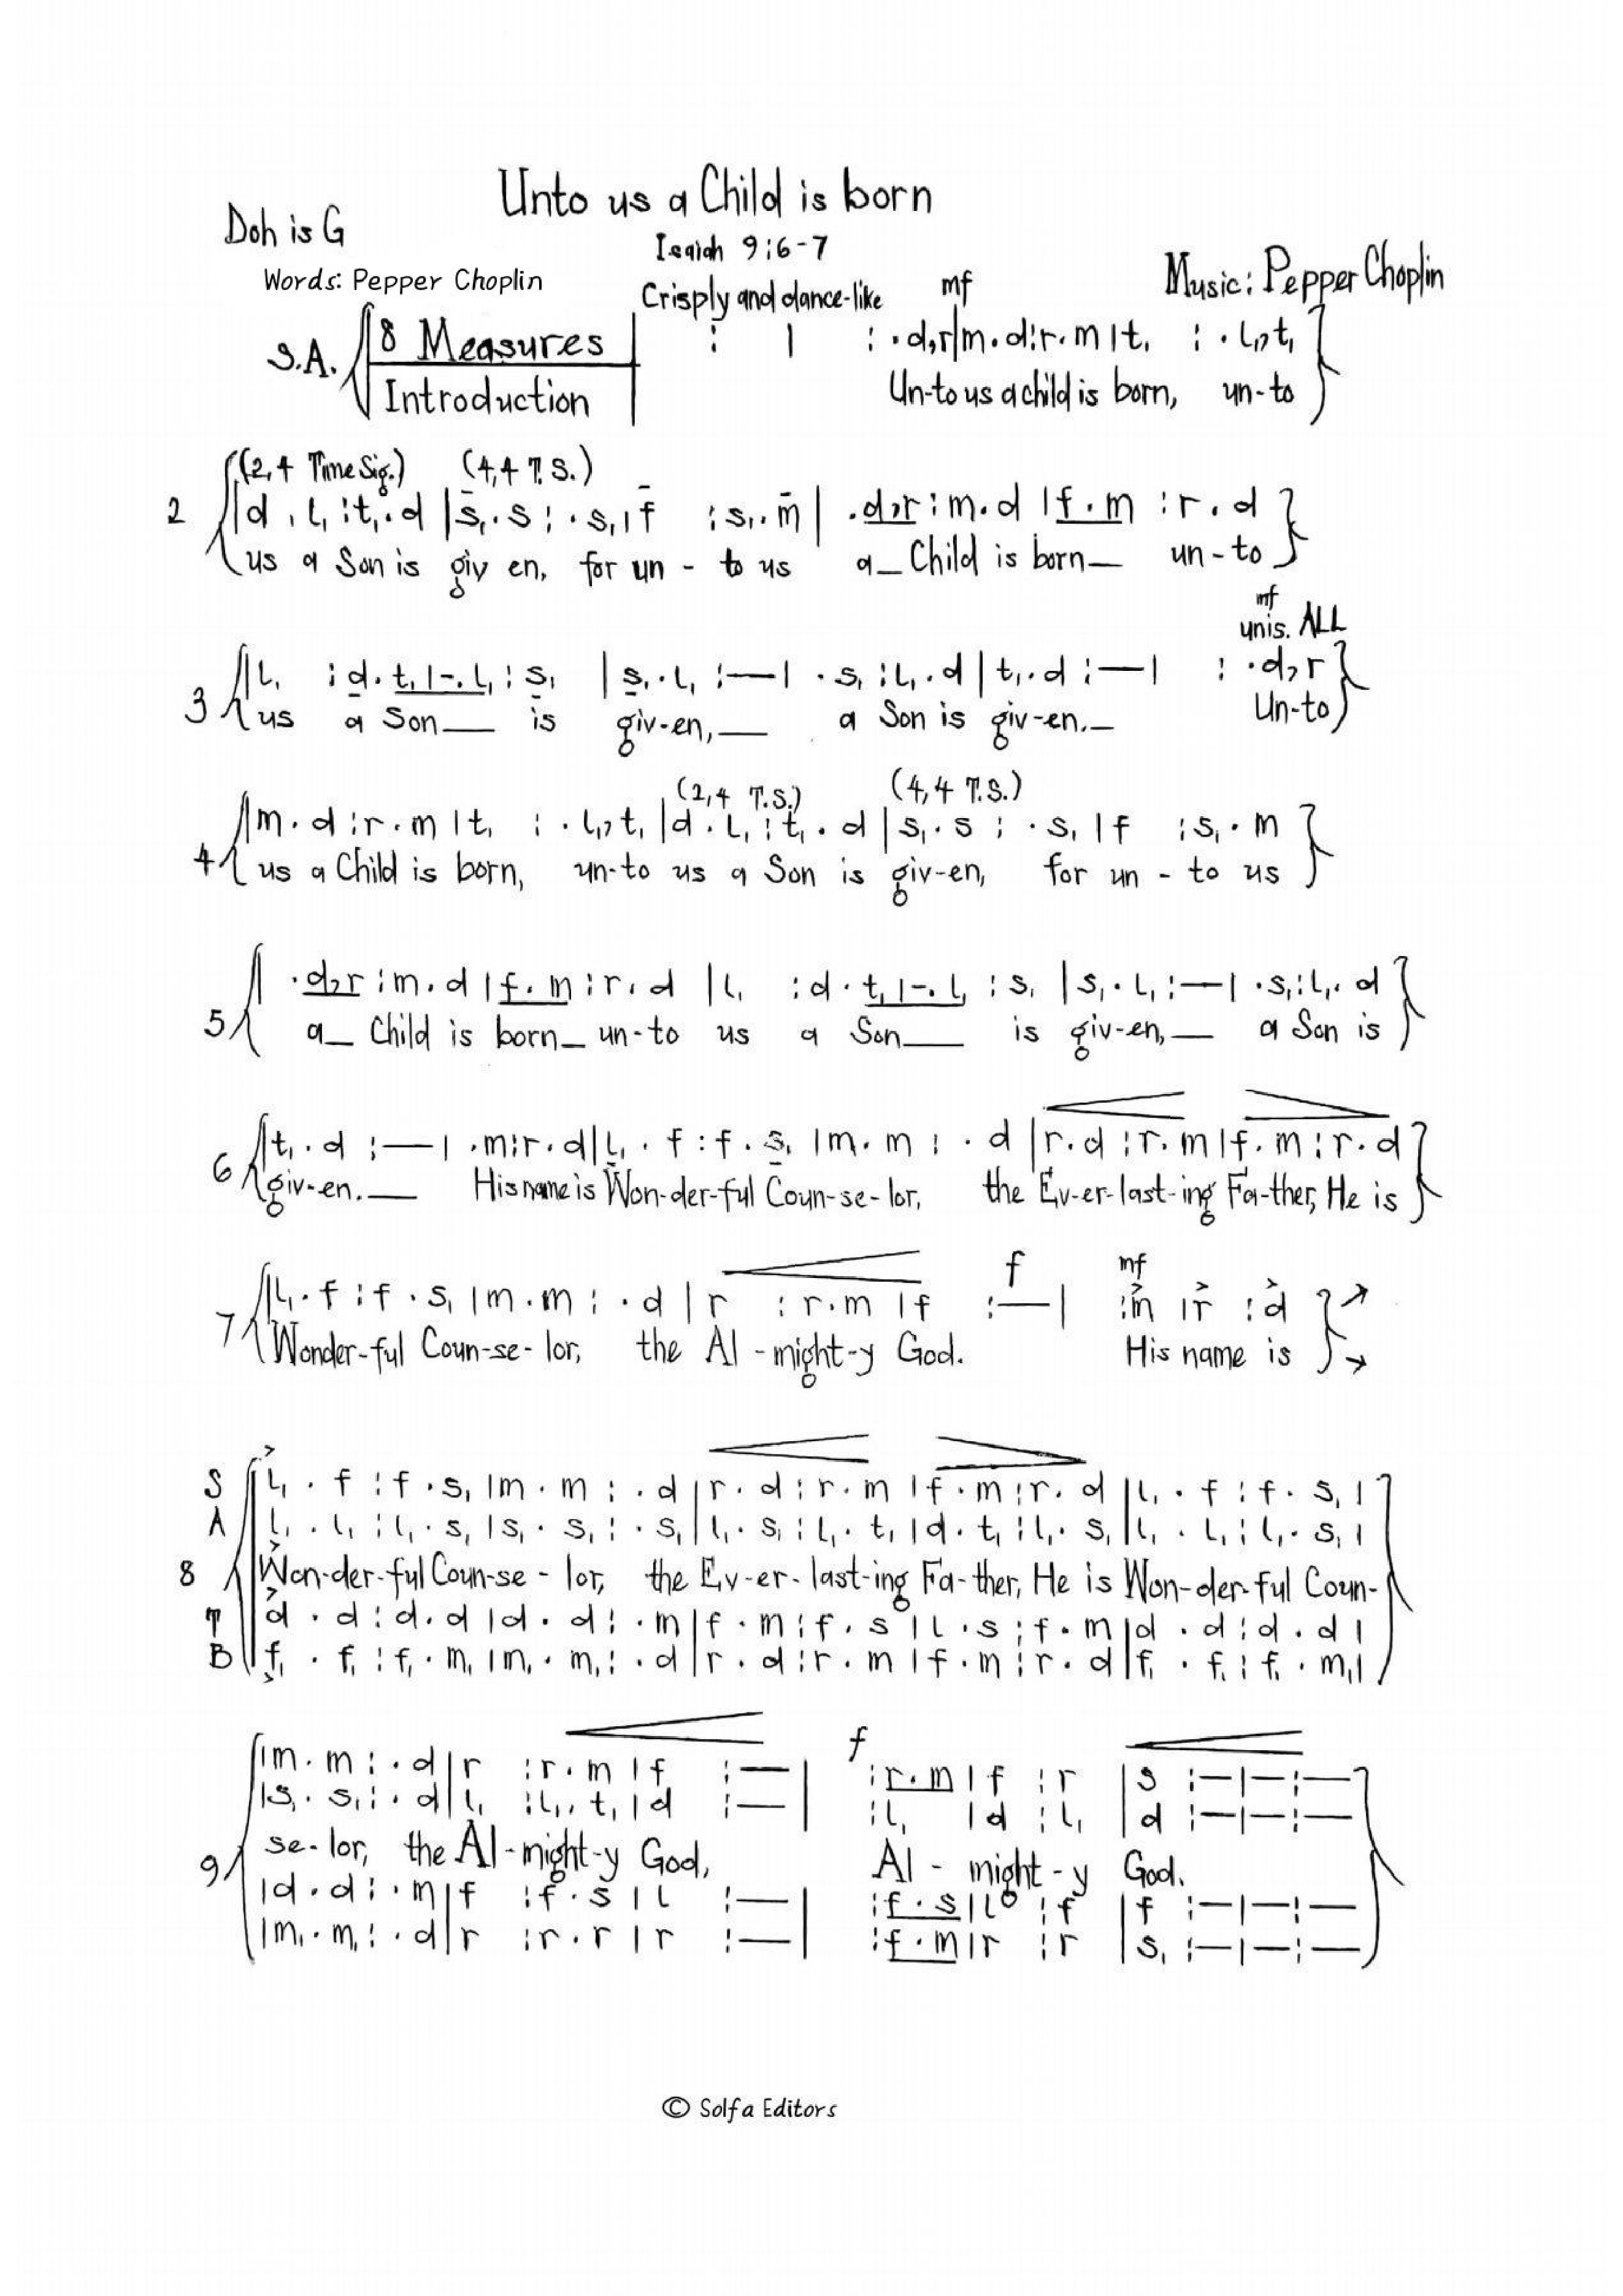 Unto us a Child is born
Doh is G
Isaiah 9:6-7
Words: Pepper Choplin
Music: Pepper Choplin
Crisply and dance-like mf
S.A. 8 Measures : | : . d,r|m.d:r.m|t, : . l,,t,
Introduction Un-to us a child is born, un-to
(2,4 Time Sig.) (4,4 T.S.)
2 |d . l, :t, .d |s, .s : . s,|f :s, .m | .d,r :m.d |f.m :r.d
us a Son is giv en, for un - to us a_ Child is born_ un-to
mf
unis. ALL
3 |l, :d.t,|-.l, :s, |s,.l, :—| .s, :l,.d |t,.d :—| : .d,r
us a Son__ is giv-en,__ a Son is giv-en._ Un-to
(2,4 T.S.) (4,4 T.S.)
4 |m.d :r.m|t, : . l,,t, |d.l, :t,.d |s,.s : .s,|f :s,.m
us a Child is born, un-to us a Son is giv-en, for un - to us
5 | .d,r :m.d |f.m :r.d |l, :d.t,|-.l, :s, |s,.l, :—| .s, :l,.d
a_ Child is born_ un-to us a Son__ is giv-en,__ a Son is
6 |t,.d :—| .m:r.d|l,.f :f.s, |m.m : .d |r.d :r.m|f.m :r.d
giv-en.__ His name is Won-der-ful Coun-se-lor, the Ev-er-last-ing Fa-ther, He is
f mf
7 |l,.f :f.s, |m.m : .d |r :r.m |f :—| :m |r :d
Wonder-ful Coun-se-lor, the Al-might-y God. His name is
S |l,.f :f.s, |m.m : .d |r.d :r.m |f.m :r.d |l,.f :f.s, |
A |l,.l, :l,.s, |s,.s, : .s, |l,.s, :l,.t, |d.t, :l,.s, |l,.l, :l,.s, |
8 Won-der-ful Coun-se-lor, the Ev-er-last-ing Fa-ther, He is Won-der-ful Coun-
T |d.d :d.d |d.d : .m |f.m :f.s |l.s :f.m |d.d :d.d |
B |f,.f, :f,.m, |m,.m, : .d |r.d :r.m |f.m :r.d |f,.f, :f,.m, |
f
|m.m : .d |r :r.m |f :—| :r.m |f :r |s :—|—:—
|s,.s, : .d |l, :l,.t, |d :—| :l, |d :l, |d :—|—:—
9 se-lor, the Al-might-y God, Al - might-y God.
|d.d : .m |f :f.s |l :—| :f.s |l :f |f :—|—:—
|m,.m, : .d |r :r.r |r :—| :f.m |r :r |s, :—|—:—
© Solfa Editors